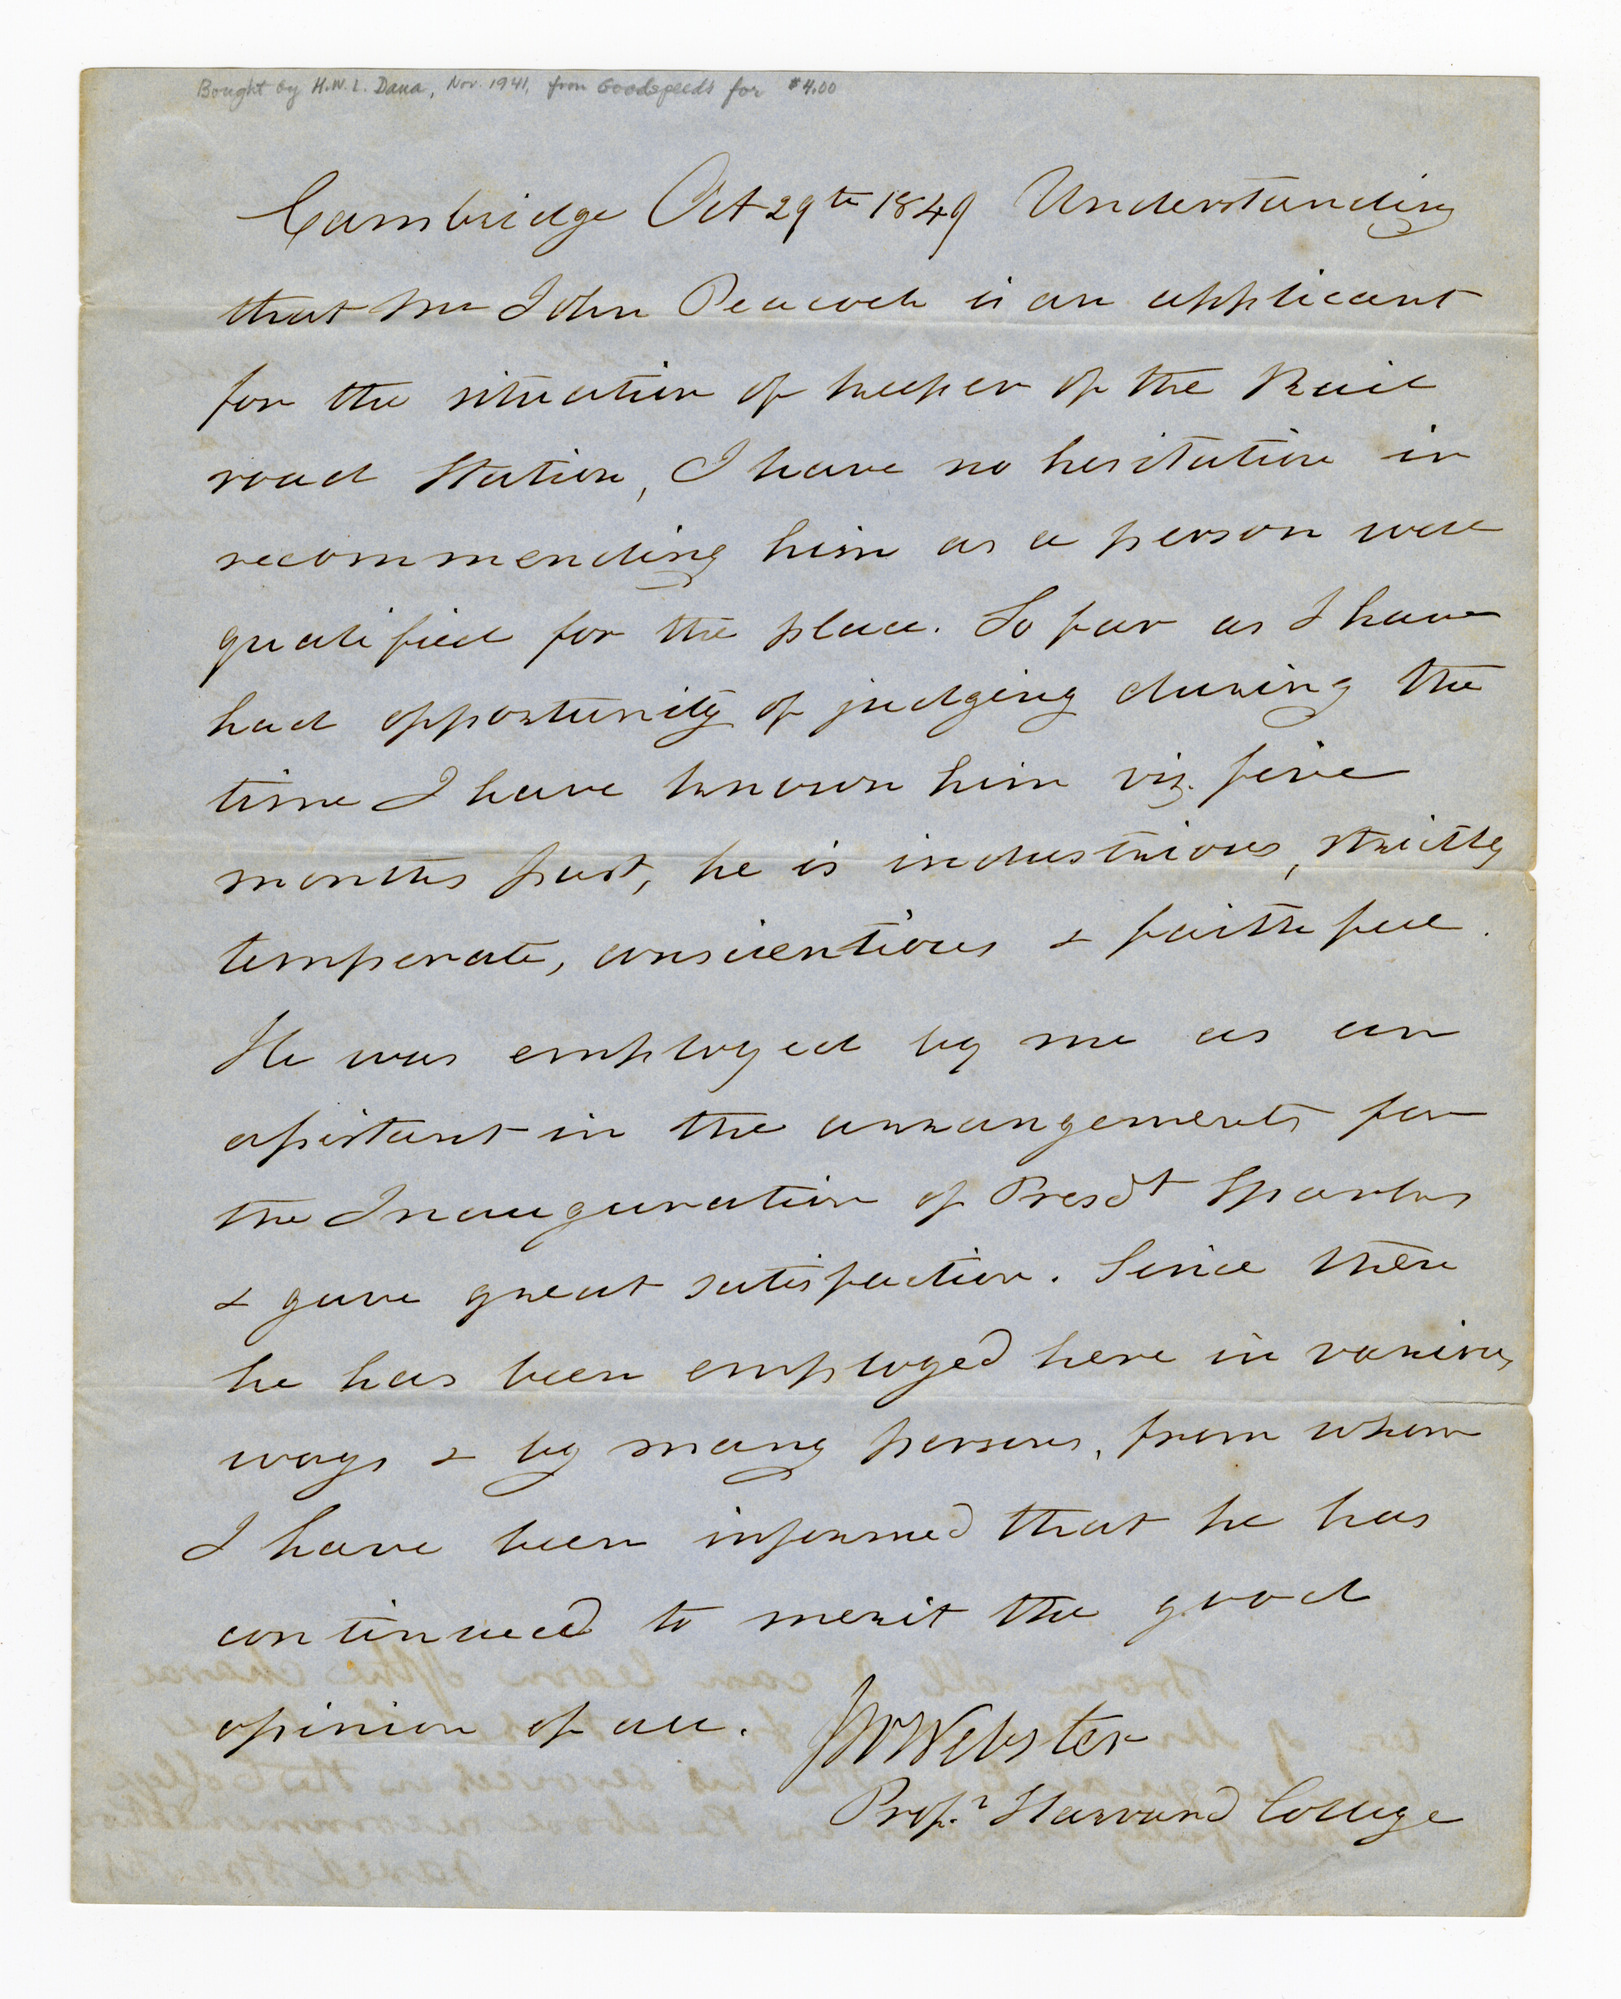 Bought by H.W.L. Dana, Nov. 1941, from Goodspeeds for $4.00
Cambridge Oct 29th 1849 Understanding
that Mr John Peacock is an applicant
for the situation of keeper of the Rail
road Station, I have no hesitation in
recommending him as a person well
qualified for the place. So far as I have
had opportunity of judging during the
time I have known him viz. five
months past, he is industrious, strictly
temperate, conscientious & faithful.
He was employed by me as an
assistant in the arrangements for
the Inauguration of Presdt Sparks
& gave great satisfaction. Since then
he has been employed here in various
ways & by many persons, from whom
I have been informed that he has
continued to merit the good
opinion of all.
JW Webster
Profr. Harvard College